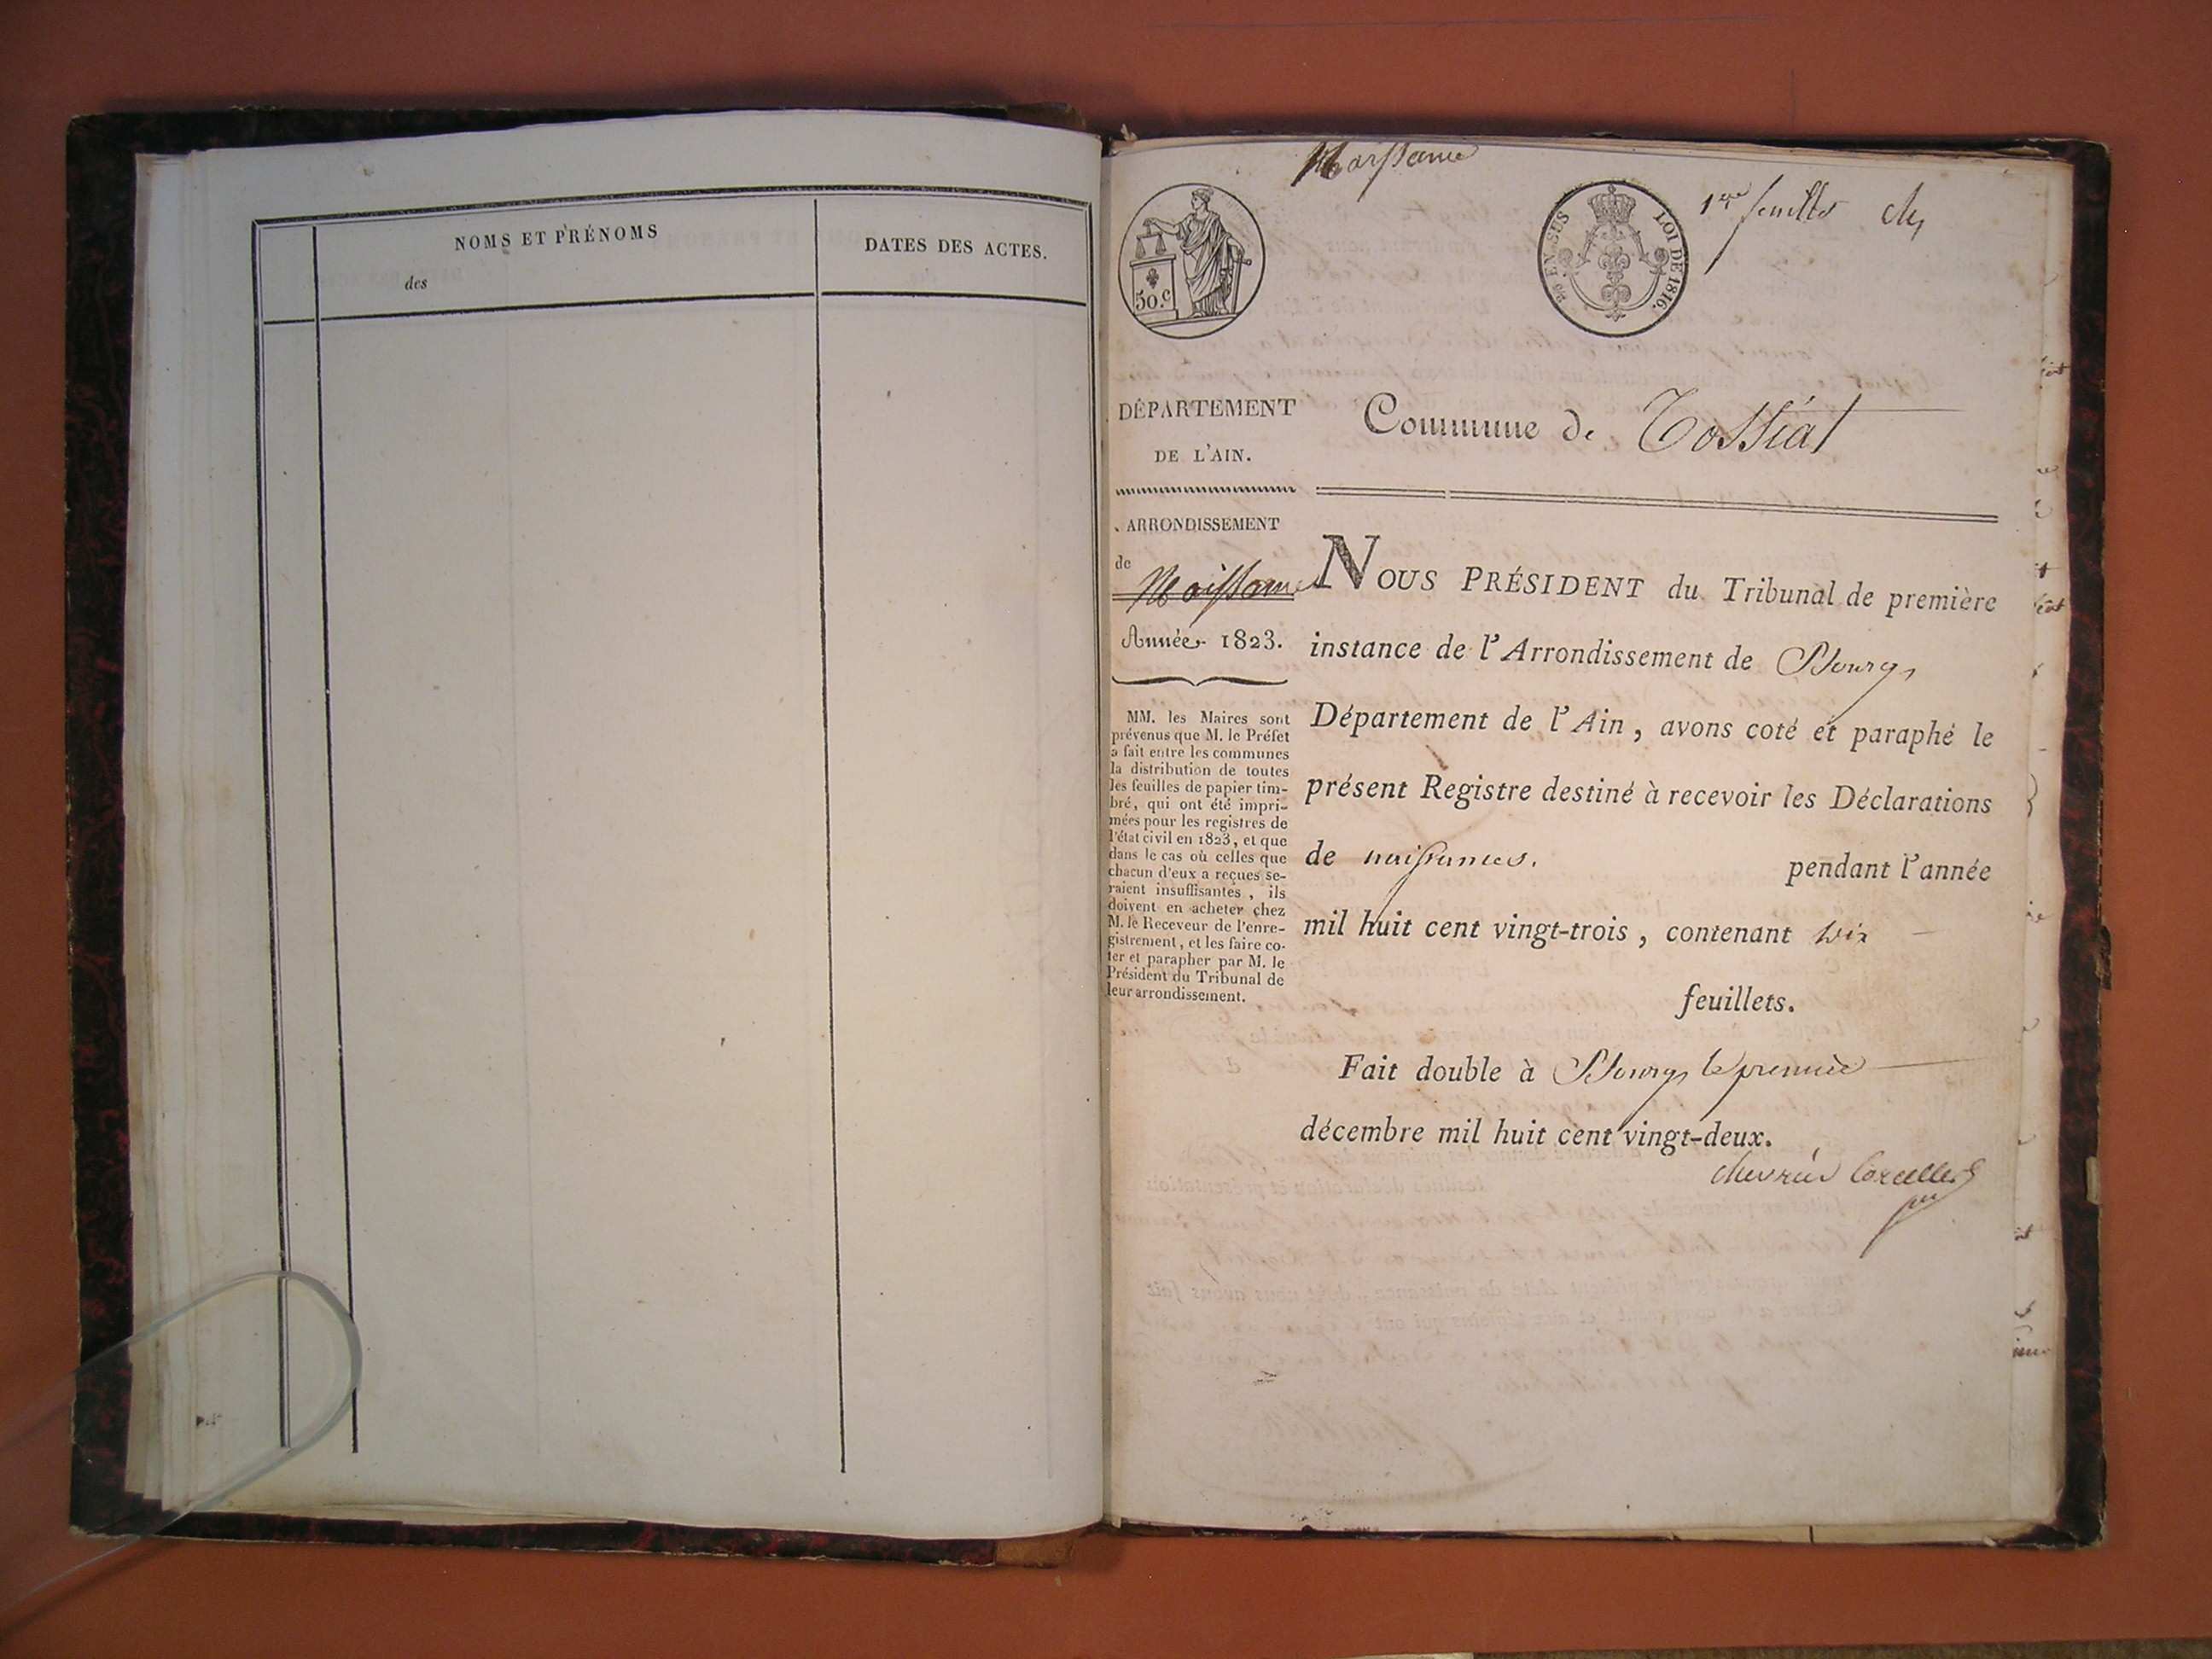 NOMS ET PRÉNOMS
des
DATES DES ACTES.
Naissance
50.c
EN SUS
LOI DE 1816.
1er feuillet
DÉPARTEMENT
DE L'AIN.
Commune de Tossiat
ARRONDISSEMENT
de
Naissance
Année 1823.
MM. les Maires sont
prévenus que M. le Préfet
a fait entre les communes
la distribution de toutes
les feuilles de papier tim-
bré, qui ont été impri-
mées pour les registres de
l'état civil en 1823, et que
dans le cas où celles que
chacun d'eux a reçues se-
raient insuffisantes, ils
doivent en acheter chez
M. le Receveur de l'enre-
gistrement, et les faire co-
ter et parapher par M. le
Président du Tribunal de
leur arrondissement.
NOUS PRÉSIDENT du Tribunal de première
instance de l'Arrondissement de Bourg
Département de l'Ain, avons coté et paraphé le
présent Registre destiné à recevoir les Déclarations
de naissances. pendant l'année
mil huit cent vingt-trois, contenant
feuillets.
Fait double à Bourg le premier
décembre mil huit cent vingt-deux.